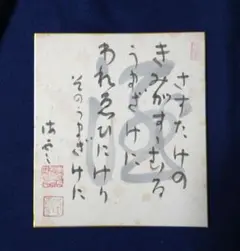 さすたけの
きみがすゝむる
うまざけに
われゑひにけり
そのうまざけに
酒